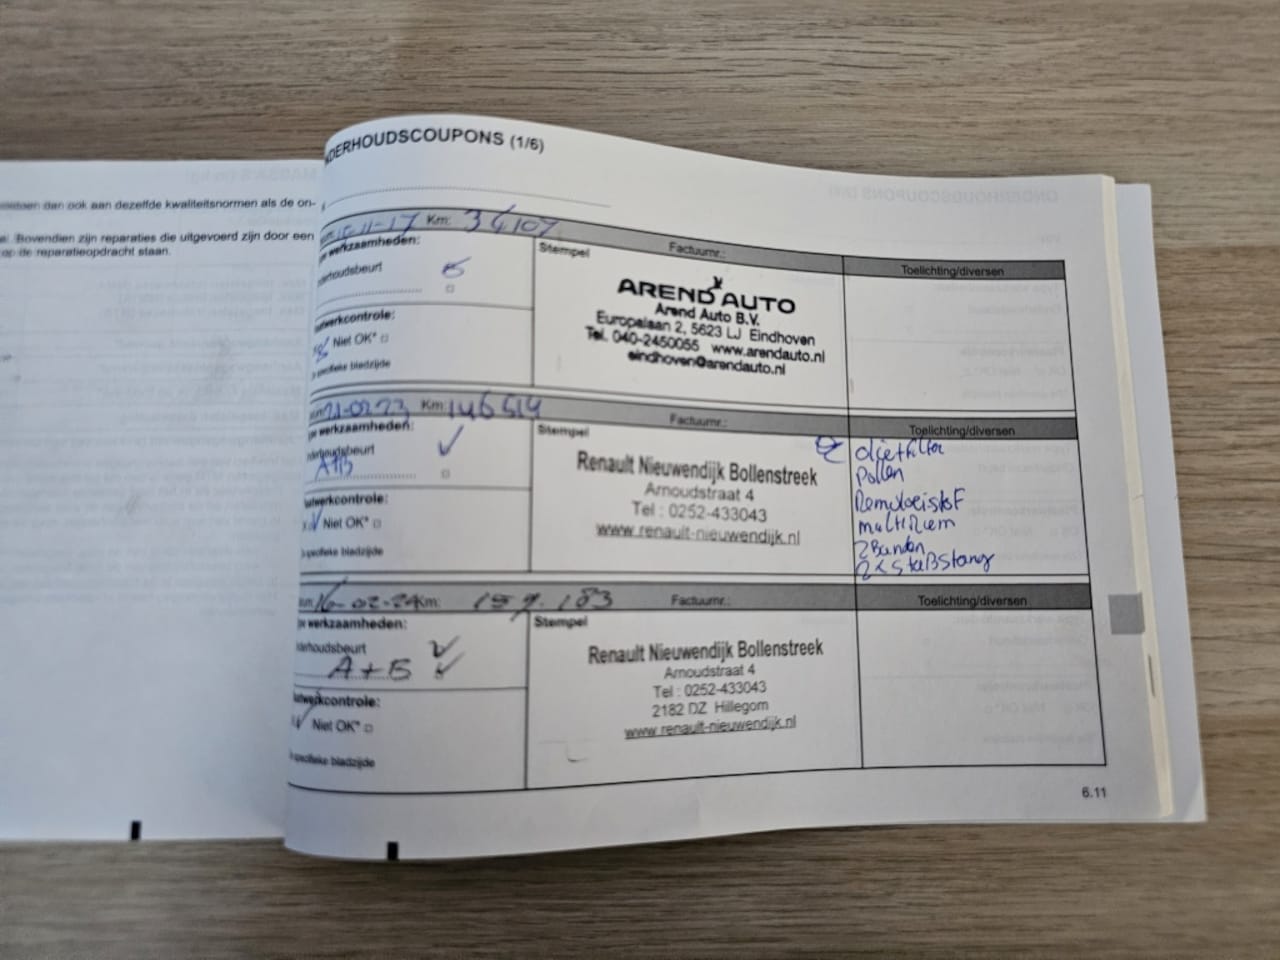 aan dezelfde kwaliteitsnormen als de on-
Bovendien zijn reparaties die uitgevoerd zijn door een
op de reparatieopdracht staan.
NDERHOUDSCOUPONS (1/6)
11-17 Km: 34107 Factuurnr.:
werkzaamheden:
derhoudsbeurt
Stempel
Toelichting/diversen
AREND AUTO
Arend Auto B.V.
Europalaan 2, 5623 LJ Eindhoven
Tel. 040-2450055 www.arendauto.nl
eindhoven@arendauto.nl
twerkcontrole:
Niet OK*
specifieke bladzijde
21-02-23 Km: 146514 Factuurnr.:
werkzaamheden:
derhoudsbeurt
A+B
Stempel
Toelichting/diversen
Renault Nieuwendijk Bollenstreek
Arnoudstraat 4
Tel : 0252-433043
www.renault-nieuwendijk.nl
oliefilter
Pollen
Remvloeistof
multiriem
2 Banden
2x Stabstang
twerkcontrole:
Niet OK*
specifieke bladzijde
16-02-24 Km: 159.183 Factuurnr.:
werkzaamheden:
derhoudsbeurt
A+B
Stempel
Toelichting/diversen
Renault Nieuwendijk Bollenstreek
Arnoudstraat 4
Tel : 0252-433043
2182 DZ Hillegom
www.renault-nieuwendijk.nl
twerkcontrole:
Niet OK*
specifieke bladzijde
6.11